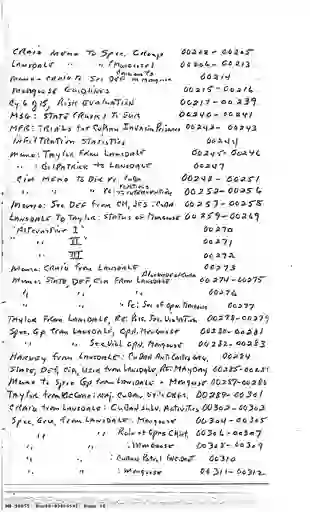 CRAIG Memo To Spec. Group 00202 - 00205
LANSDALE " " (Mongoose) 00206 - 00213
Memo - CRAIG to Sec DEF in Mongoose 00214
Mongoose Guidelines 00215 - 00216
Cy 6 of 15, Risk EVALUATION 00217 - 00239
MSG: STATE (Rusk) To EUR 00240 - 00241
MFR: TRIALS for Cuban Invasion Prisoners 00242 - 00243
INFILTRATION STATISTICS 00244
Memo: Taylor From Lansdale 00245 - 00246
" : GILPATRICK to LANSDALE 00247
CIA MEMO To DIR re: Cuba 00248 - 00251
" " " re: to INTERVENTION 00252 - 00256
Memo: Sec DEF from CH, JCS: CUBA 00257 - 00258
LANSDALE To Taylor: STATUS of Mongoose 00259 - 00269
"Alternative I" 00270
" " II" 00271
" " III 00272
Memo: CRAIG from LANSDALE 00273
Memo: STATE, DEF, CIA From LANSDALE 00274 - 00275
" " " 00276
" " " re: Sec of Opns Mongoose 00277
Taylor From LANSDALE, RE: Violation 00278 - 00279
Spec. Gp from LANSDALE, OPN. Mongoose 00280 - 00281
" " See Viol OPN. Mongoose 00282 - 00283
HARVEY from LANSDALE: CUBAN 00284
STATE, DEF, CIA, USIA from Lansdale, RE: MAYDAY 00285 - 00286
Memo to Spec Gp from LANSDALE - Mongoose 00287 - 00288
Taylor from 00289 - 00301
CRAIG from Lansdale: CUBAN Subv. Activities 00302 - 00303
Spec Grp, from LANSDALE: Mongoose 00304 - 00305
" " : Role of Opns Chief, 00306 - 00307
" " : Mongoose 00308 - 00309
" : Cuban Patrol Incident 00310
" : Mongoose 00311 - 00312